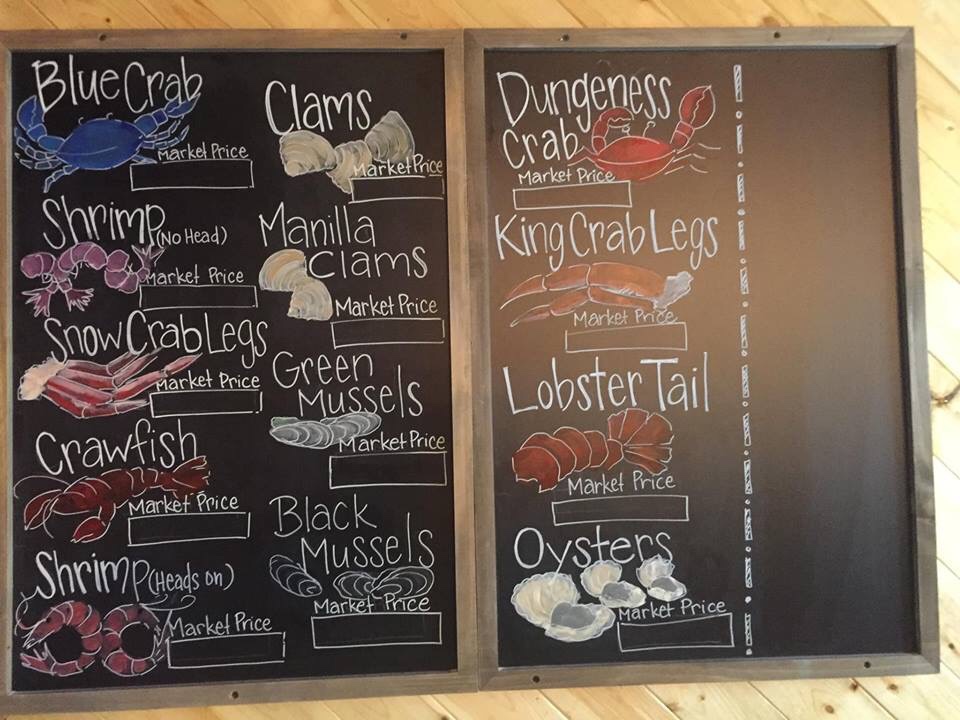 Blue Crab
Market Price
Shrimp (No Head)
Market Price
Snow Crab Legs
Market Price
Crawfish
Market Price
Shrimp (Heads on)
Market Price
Clams
Market Price
Manilla
Clams
Market Price
Green
Mussels
Market Price
Black
Mussels
Market Price
Dungeness
Crab
Market Price
King Crab Legs
Market Price
Lobster Tail
Market Price
Oysters
Market Price